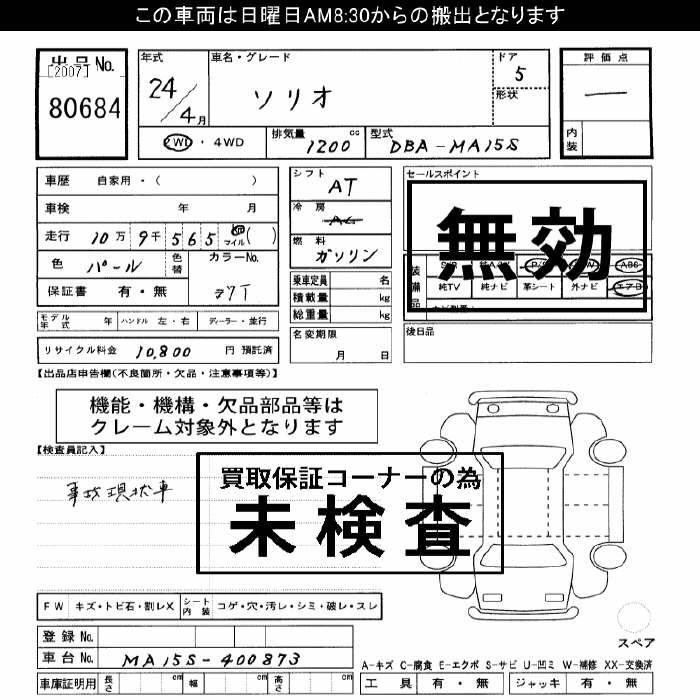 この車両は日曜日AM8:30からの搬出となります
出品No.
[2007]
80684
年式
24
4月
車名・グレード
ソリオ
ドア
5
形状
評価点
内装
2WD・4WD
排気量
1200 cc
型式
DBA-MA15S
車歴 自家用・( )
車検 年 月
走行 10万 9千 5 6 5 km マイル ( )
色 パール
色替
カラーNo.
保証書 有・無
ZYT
シフト
AT
冷房
AC
燃料
ガソリン
乗車定員 名
積載量 kg
総重量 kg
セールスポイント
無効
装備品
純TV 純ナビ 革シート 外ナビ エアB
モデル年式 年 ハンドル 左・右 ディーラー・並行
名変期限
月 日
後日品
リサイクル料金 10,800 円 預託済
【出品店申告欄(不良箇所・欠品・注意事項等)】
機能・機構・欠品部品等は
クレーム対象外となります
【検査員記入】
事故現状車
買取保証コーナーの為
未検査
FW キズ・トビ石・割レX シート内装 コゲ・穴・汚レ・シミ・破レ・スレ
スペア
登録No.
車台No. MA15S-400873
A-キズ C-腐食 E-エクボ S-サビ U-凹ミ W-補修 XX-交換済
車庫証明用 長さ cm 幅 cm 高さ cm
工具 有・無 ジャッキ 有・無